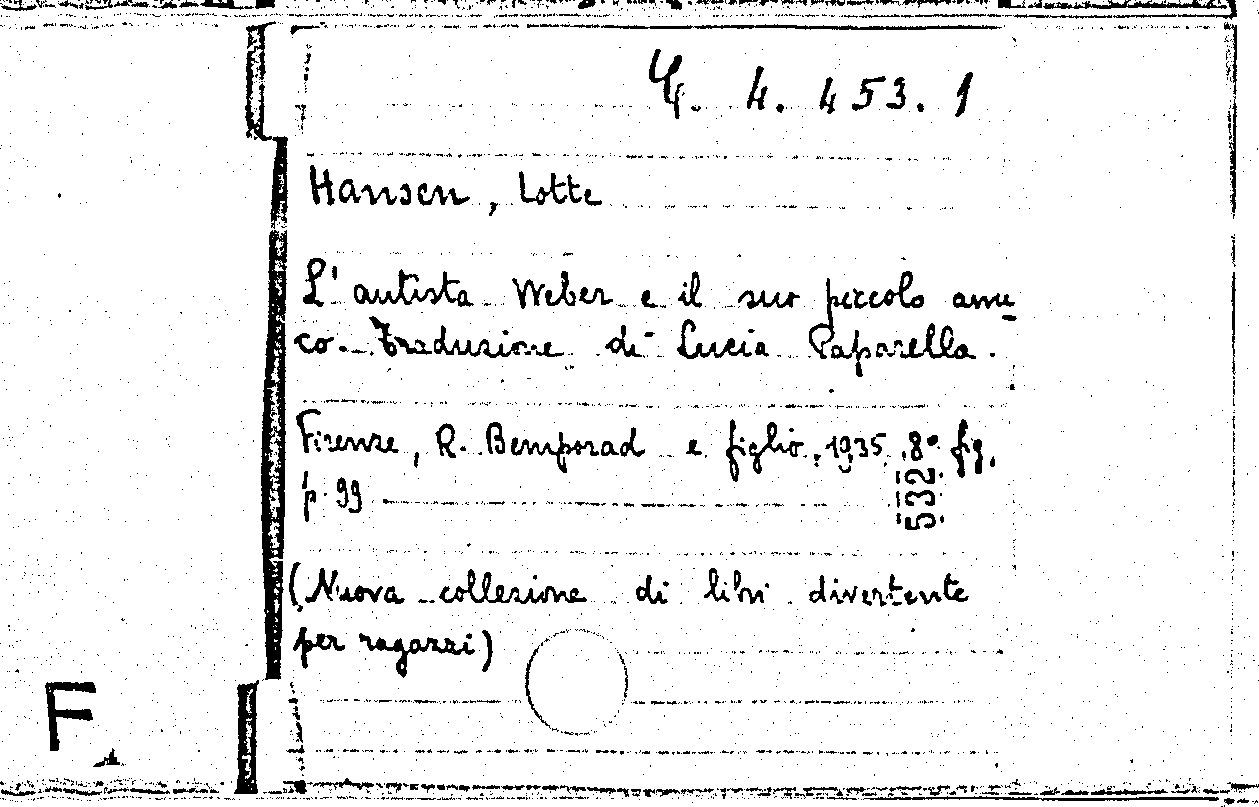 4. 4. 453. 1
Hansen, Lotte
L'autista Weber e il suo piccolo ami-
co. Traduzione di Lucia Paparella.
Firenze, R. Bemporad e figlio, 1935. 8° fig.
p. 99
532
(Nuova collezione di libri divertente
per ragazzi)
F